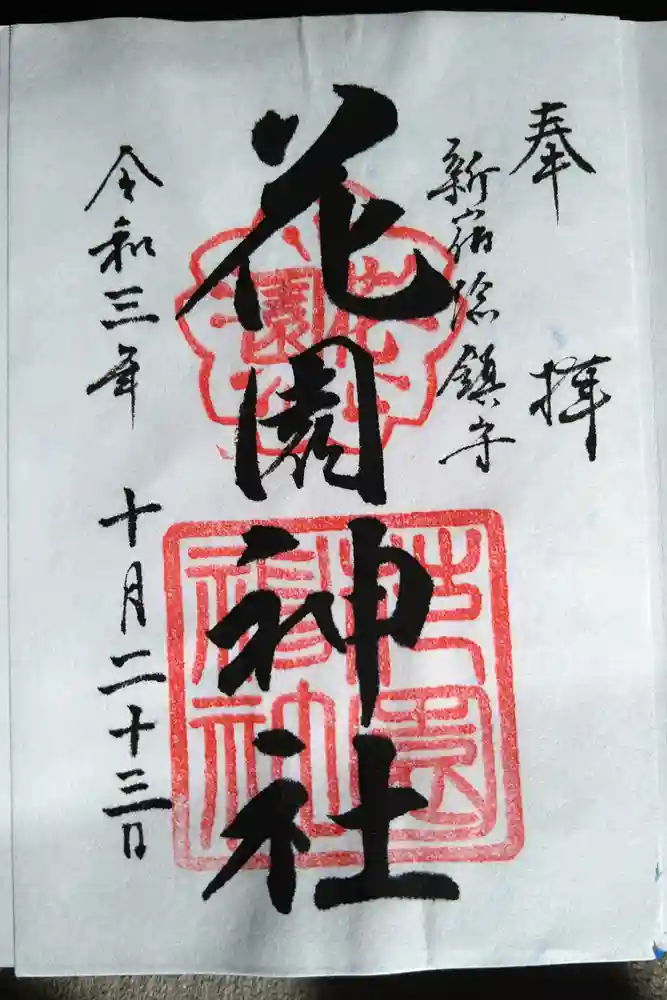 奉拝
新宿総鎮守
花園神社
令和三年十月二十三日
花園神社
花園神社